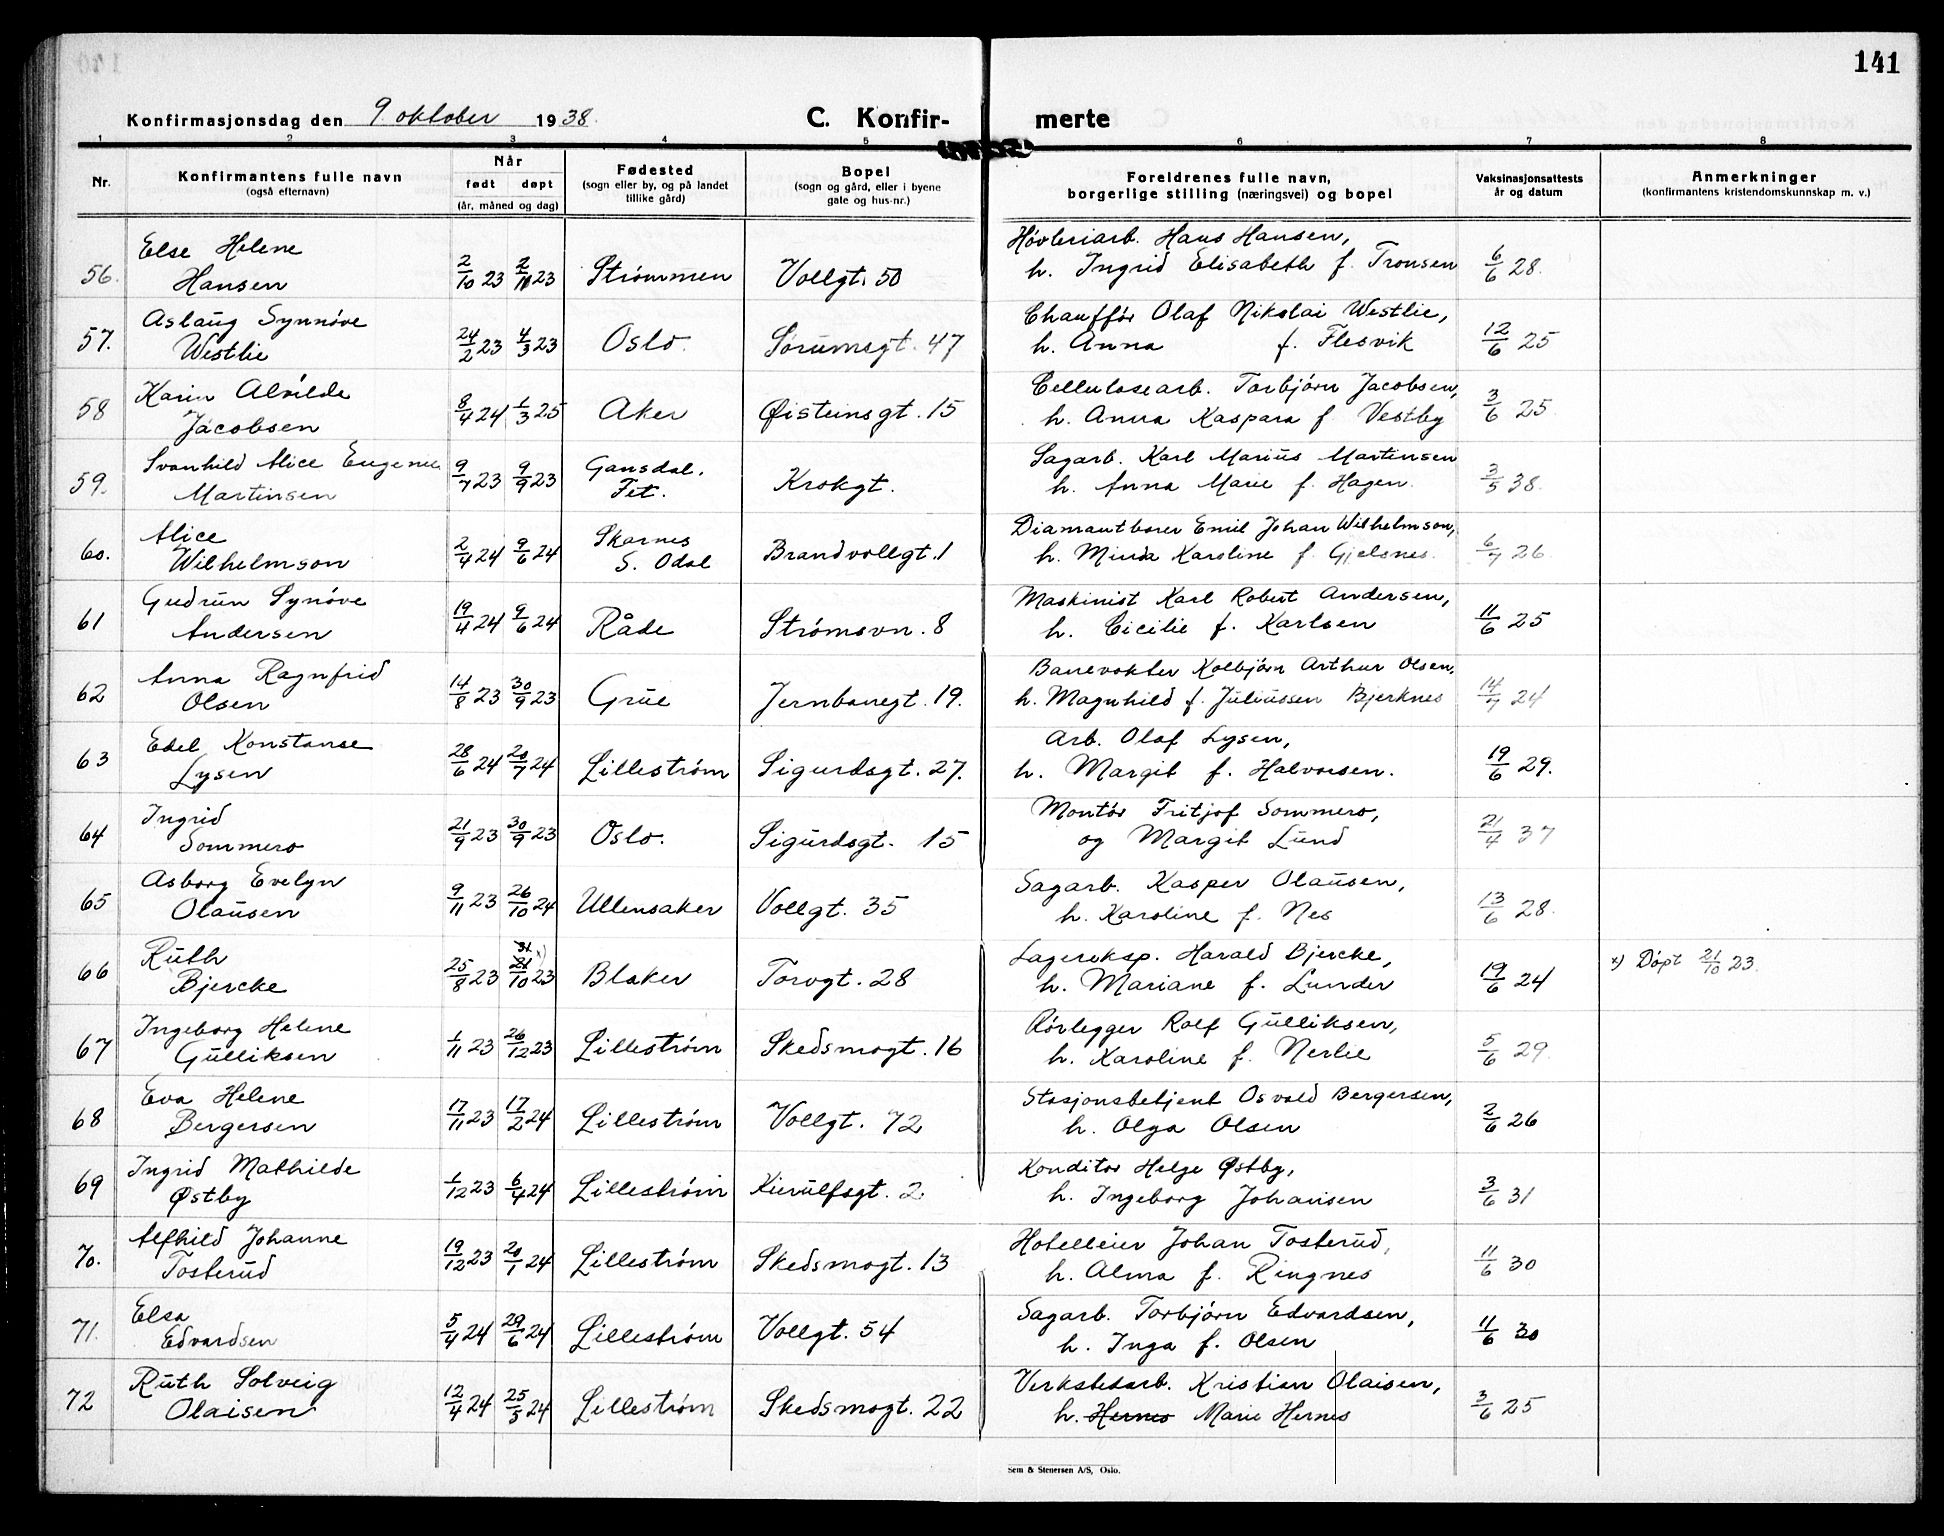 141
Konfirmasjonsdag den 9 oktober 1938.
C. Konfir- merte
1 2 3 4 5 6 7 8
Nr.
Konfirmantens fulle navn
(også efternavn)
Når
født døpt
(år, måned og dag)
Fødested
(sogn eller by, og på landet
tillike gård)
Bopel
(sogn og gård, eller i byene
gate og hus-nr.)
Foreldrenes fulle navn,
borgerlige stilling (næringsvei) og bopel
Vaksinasjonsattests
år og datum
Anmerkninger
(konfirmantens kristendomskunnskap m. v.)
Else Helene Høvleriarb. Hans Hansen,
56. Hansen 2/10 23 2/11 23 Strømmen Vollgt. 50 h. Ingrid Elisabeth f. Tronsen 6/6 28.
Aslaug Synnøve Chauffør Olaf Nikolai Westlie,
57. Westlie 24/2 23 4/3 23 Oslo. Sørumsgt. 47 h. Anna f. Flesvik 12/6 25
Karin Alvilde Cellulosearb. Torbjørn Jacobsen,
58 Jacobsen 8/4 24 1/3 25 Aker Øisteinsgt. 15 h. Anna Kaspara f. Vestby 3/6 25.
Svanhild Alice Eugenie Gansdal. Sagarb. Karl Marius Martinsen
59. Martinsen 9/7 23 9/9 23 Fet. Krokgt. h. Anna Marie f. Hagen. 3/5 38.
Alice Skarnes Diamantborer Emil Johan Wilhelmson,
60. Wilhelmson 2/4 24 9/6 24 S. Odal Brandvollgt. 1 h. Minda Karoline f. Gjelsnes. 6/7 26.
Gudrun Synøve Maskinist Karl Robert Andersen,
61 Andersen 19/4 24 9/6 24 Råde Strømsvn. 8 h. Cicilie f. Karlsen 11/6 25
Anna Ragnfrid Banevokter Kolbjørn Arthur Olsen,
62 Olsen 14/8 23 30/9 23 Grue Jernbanegt. 19. h. Magnhild f. Juliussen Bjerknes 14/7 24
Edel Konstanse Arb. Olaf Lysen,
63 Lysen 28/6 24 20/7 24 Lillestrøm Sigurdsgt. 27. h. Margit f. Halvorsen. 19/6 29.
Ingrid Montør Fritjof Sommero,
64 Sommero 21/9 23 30/9 23 Oslo. Sigurdsgt. 15 og Margit Lund 21/4 37
Asborg Evelyn Sagarb. Kasper Olausen,
65 Olausen 9/11 23 26/10 24 Ullensaker Vollgt. 35 h. Karoline f. Nes 13/6 28.
Ruth 31 Lagereksp. Harald Bjercke,
66 Bjercke 25/8 23 21/10 23 Blaker Torvgt. 28 h. Mariane f. Lunder 19/6 24 x) Døpt 21/10 23.
Ingeborg Helene Rørlegger Rolf Gulliksen,
67 Gulliksen 1/11 23 26/12 23 Lillestrøm Skedsmogt. 16 h. Karoline f. Nerlie 5/6 29.
Eva Helene Stasjonsbetjent Osvald Bergersen,
68 Bergersen 17/11 23 17/2 24 Lillestrøm Vollgt. 72 h. Olga Olsen 2/6 26
Ingrid Mathilde Konditor Helge Østby,
69 Østby 1/12 23 6/4 24 Lillestrøm Kierulfsgt. 2. h. Ingeborg Johansen 3/6 31
Alfhild Johanne Hotelleier Johan Tosterud,
70. Tosterud 19/12 23 20/1 24 Lillestrøm Skedsmogt. 13 h. Alma f. Ringnes 11/6 30
Elsa Sagarb. Torbjørn Edvardsen,
71. Edvardsen 5/4 24 29/6 24 Lillestrøm Vollgt. 54 h. Inga f. Olsen 11/6 30
Ruth Solveig Verkstedarb. Kristian Olaisen,
72 Olaisen 12/4 24 25/5 24 Lillestrøm Skedsmogt. 22 h. Hernes Marie Hernes 3/6 25
Sem & Stenersen A/S, Oslo.